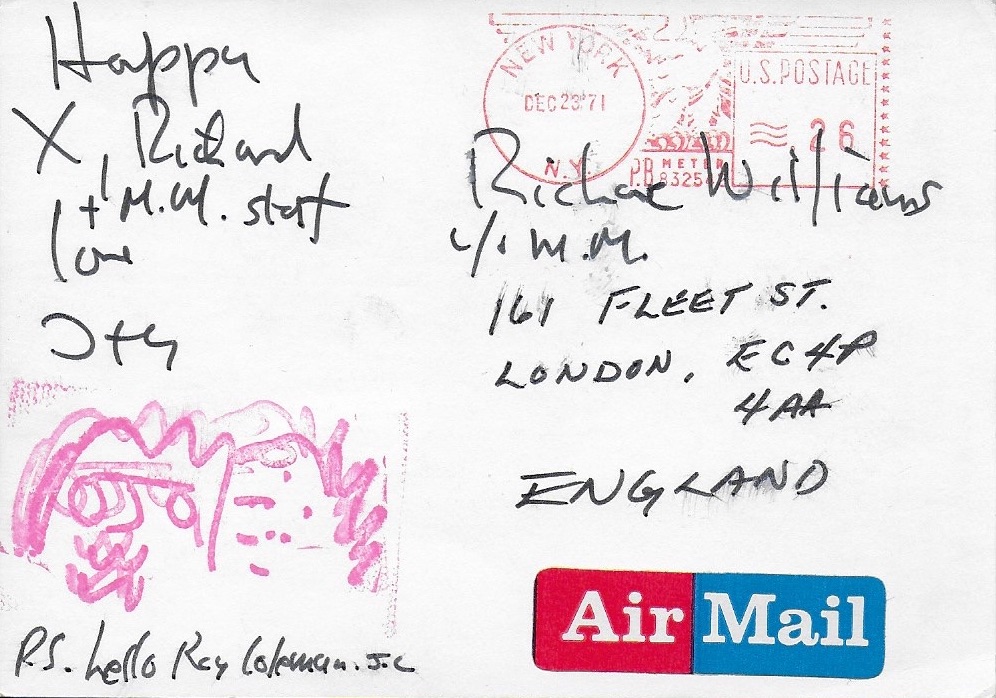 Happy
X, Richard
+ M.M. staff
love
J+Y
P.S. hello Ray Coleman. J.L
NEW YORK
DEC 23 '71
N.Y.
U.S. POSTAGE
26
P.B. METER
Richard Williams
c/o M.M.
161 FLEET ST.
LONDON, EC4P
4AA
ENGLAND
Air Mail